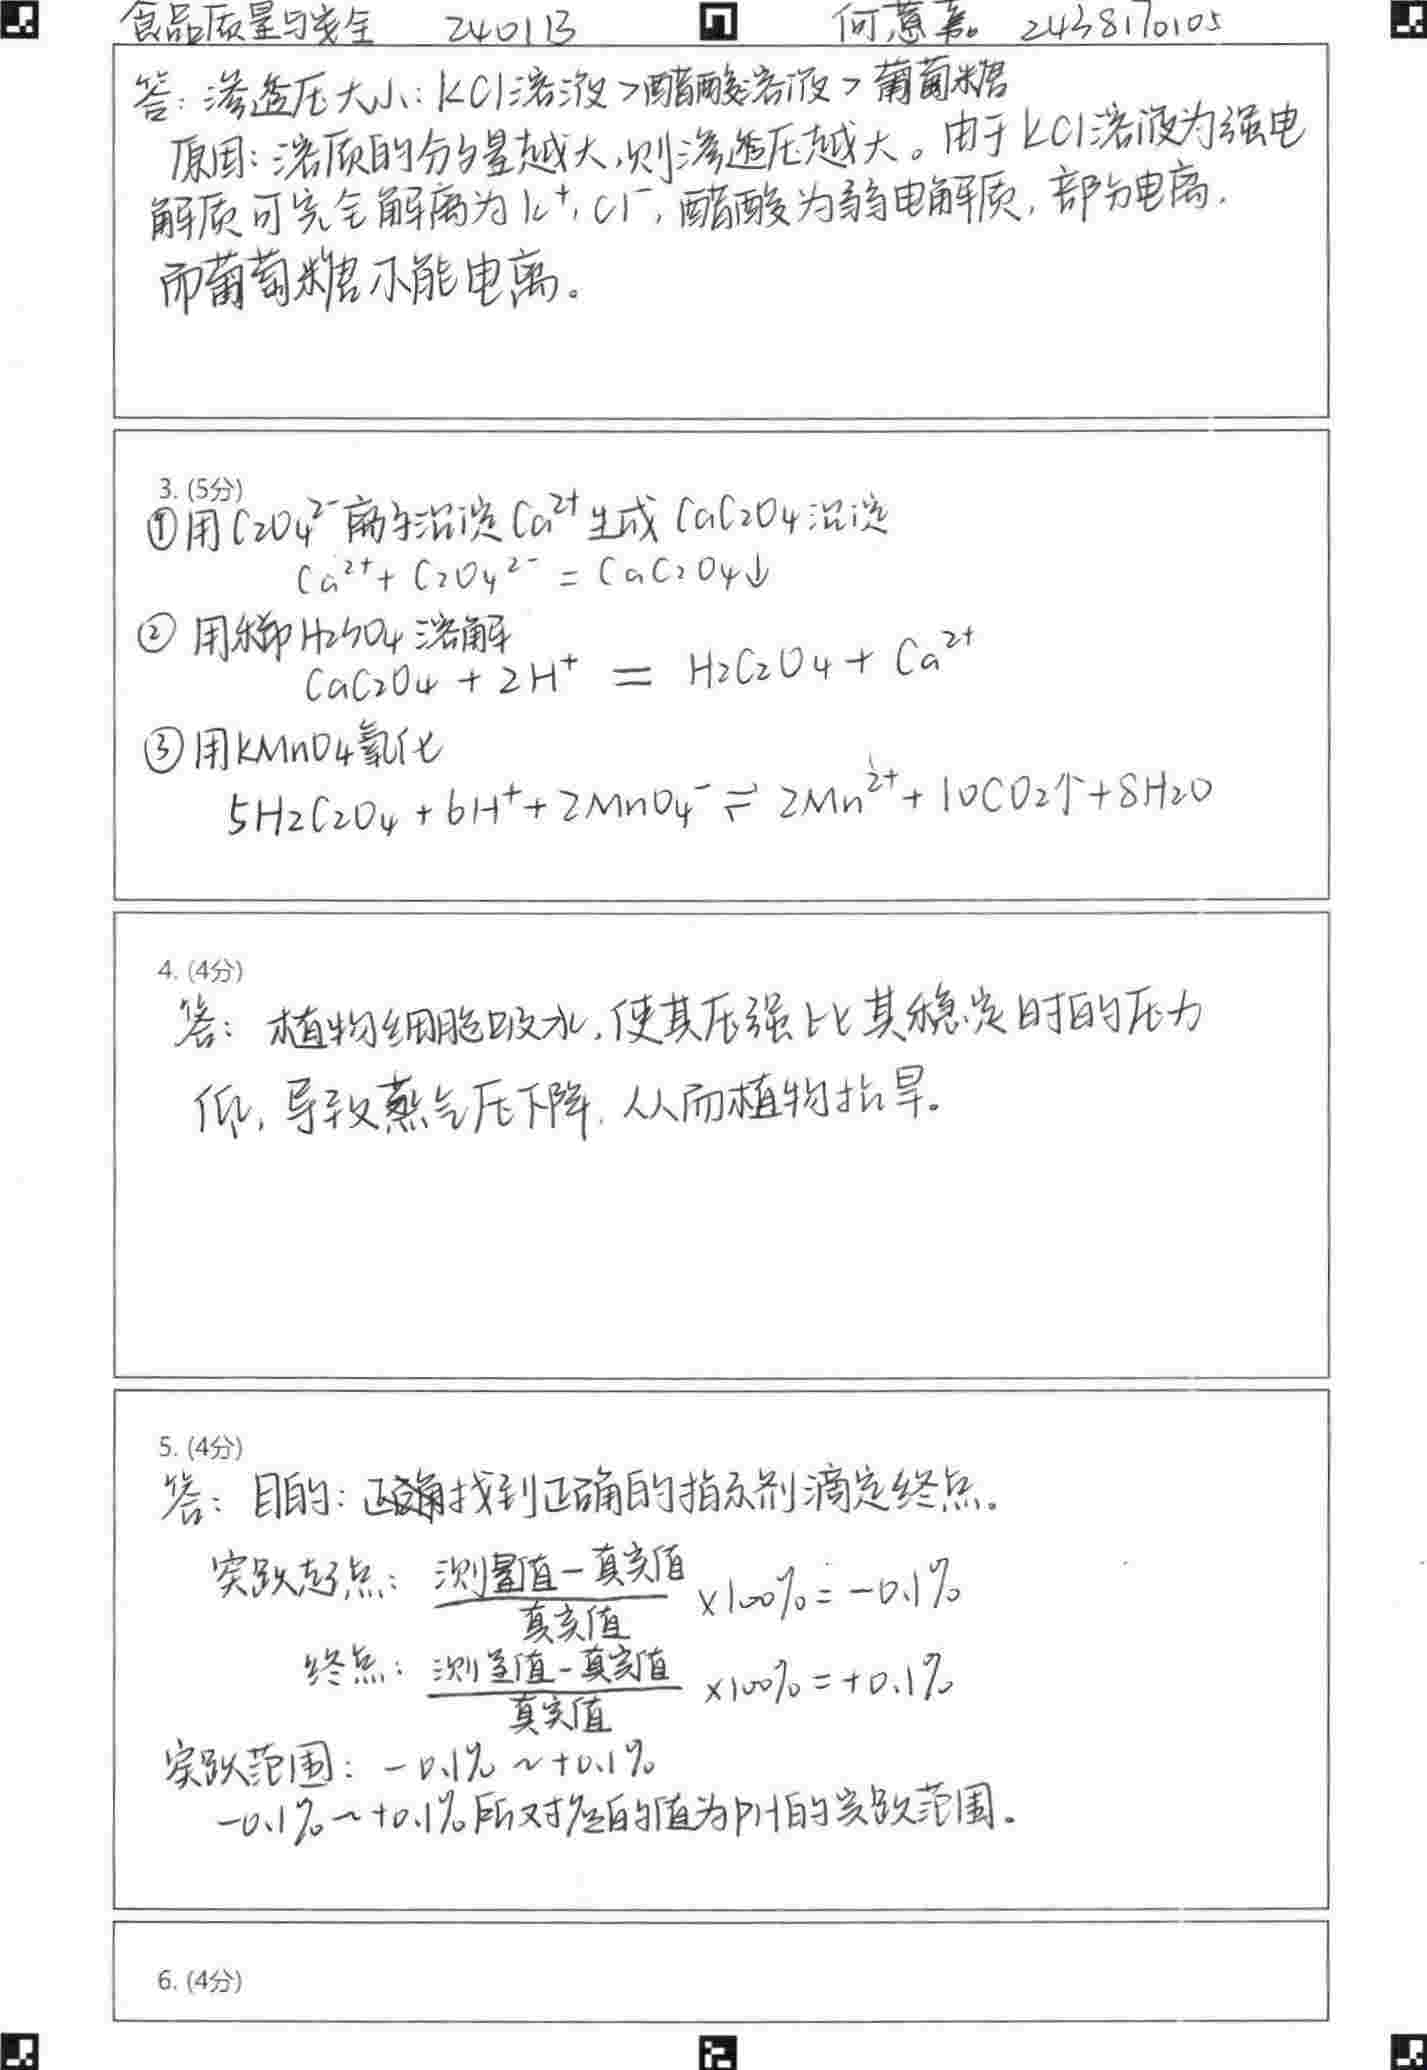 食品质量与安全 240113 何蕙嘉 2438170105
答：渗透压大小：KCl溶液＞醋酸溶液＞葡萄糖
原因：溶质的分量越大，则渗透压越大。由于KCl溶液为强电
解质可完全解离为K⁺，Cl⁻，醋酸为弱电解质，部分电离，
而葡萄糖不能电离。
3. (5分)
①用C₂O₄²⁻离子沉淀Ca²⁺生成CaC₂O₄沉淀
Ca²⁺ + C₂O₄²⁻ = CaC₂O₄↓
② 用稀H₂SO₄溶解
CaC₂O₄ + 2H⁺ = H₂C₂O₄ + Ca²⁺
③用KMnO₄氧化
5H₂C₂O₄ + 6H⁺ + 2MnO₄⁻ ⇌ 2Mn²⁺ + 10CO₂↑ + 8H₂O
4. (4分)
答：植物细胞吸水，使其压强比其稳定时的压力
低，导致蒸气压下降，从而植物抗旱。
5. (4分)
答：目的：正确找到正确的指示剂滴定终点。
突跃起点：(测量值－真实值)/真实值 ×100% = －0.1%
终点：(测量值－真实值)/真实值 ×100% = +0.1%
突跃范围：－0.1% ~ +0.1%
－0.1% ~ +0.1%所对应的值为pH的突跃范围。
6. (4分)